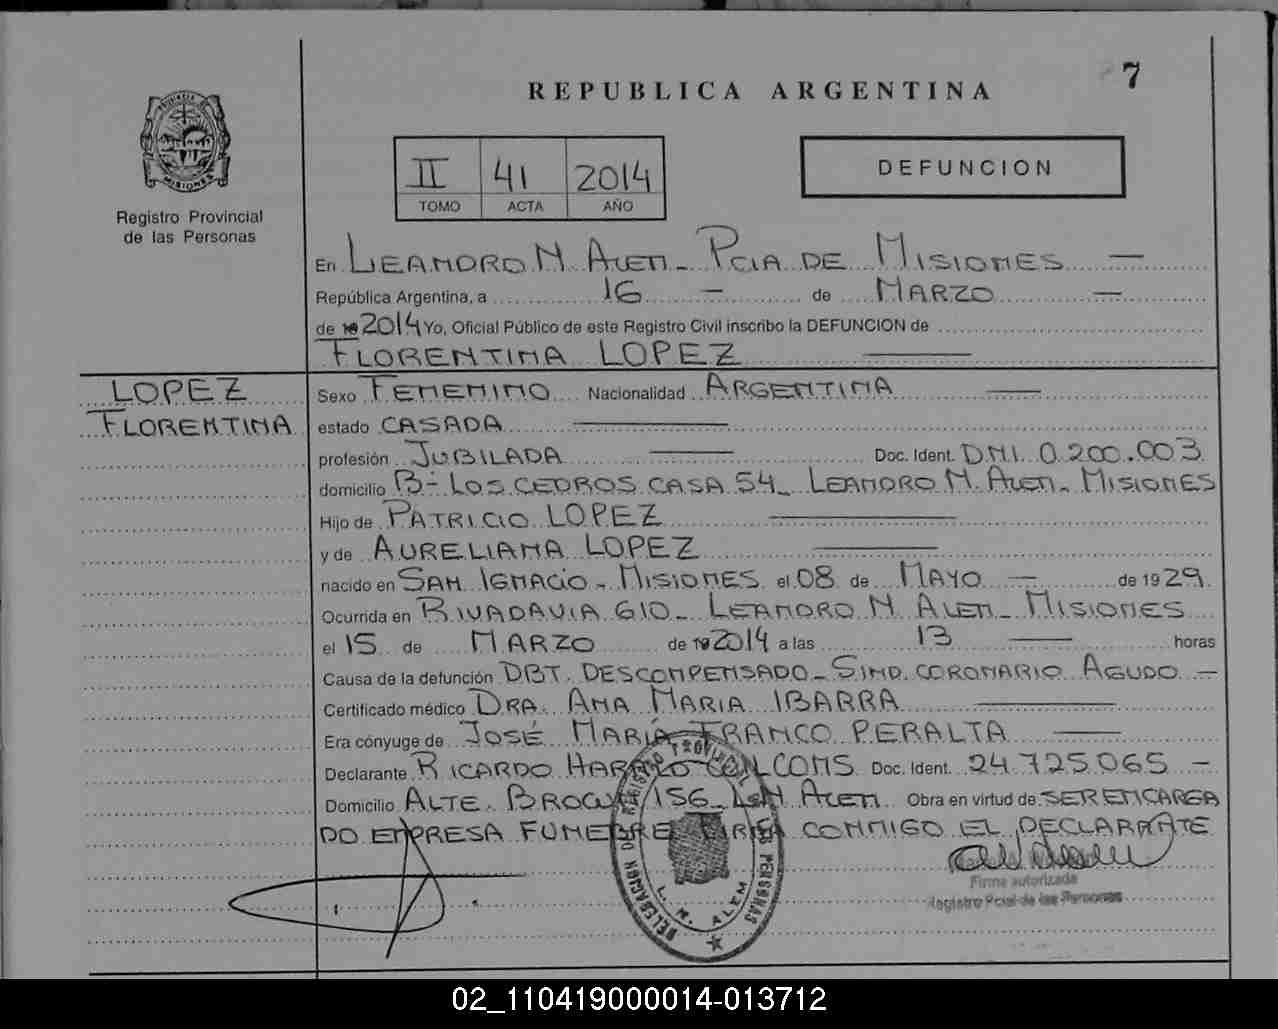 7
REPUBLICA ARGENTINA
PROVINCIA DE
MISIONES
Registro Provincial
de las Personas
II 41 2014
TOMO ACTA AÑO
DEFUNCION
En LEANDRO N. ALEM - PCIA DE MISIONES —
República Argentina, a 16 — de MARZO —
de 19 2014 Yo, Oficial Público de este Registro Civil inscribo la DEFUNCION de
FLORENTINA LOPEZ
LOPEZ
FLORENTINA
Sexo FEMENINO Nacionalidad ARGENTINA —
estado CASADA —
profesión JUBILADA — Doc. Ident. D.N.I. 0.200.003
domicilio B- LOS CEDROS CASA 54 - LEANDRO N. ALEM - MISIONES
Hijo de PATRICIO LOPEZ —
y de AURELIANA LOPEZ —
nacido en SAN IGNACIO - MISIONES el 08 de MAYO — de 1929
Ocurrida en RIVADAVIA 610 - LEANDRO N. ALEM - MISIONES
el 15 de MARZO de 19 2014 a las 13 — horas
Causa de la defunción DBT. DESCOMPENSADO - SIND. CORONARIO AGUDO —
Certificado médico DRA. ANA MARIA IBARRA —
Era cónyuge de JOSÉ MARIA FRANCO PERALTA —
Declarante RICARDO Doc. Ident. 24.725.065 —
Domicilio ALTE. BROWN 156 - L.N. ALEM Obra en virtud de SER ENCARGA
DO EMPRESA FUNEBRE FIRMA CONMIGO EL DECLARANTE
DELEGACION DEL REGISTRO PROVINCIAL DE LAS PERSONAS
L. N. ALEM
Firma autorizada
Registro Pcial de las Personas
02_110419000014-013712